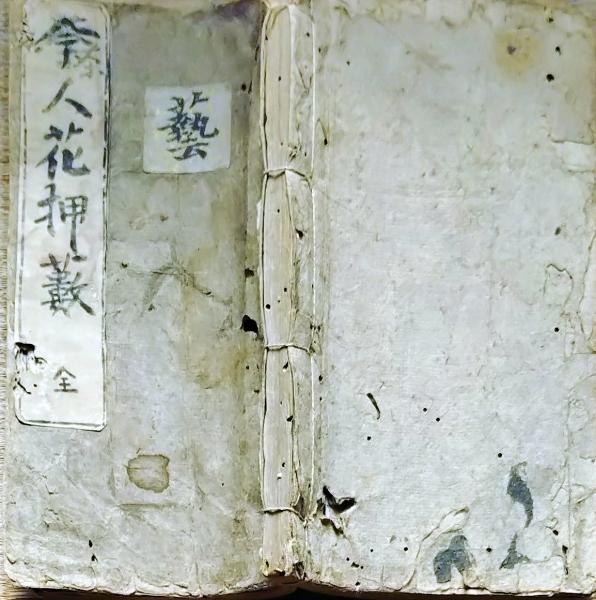 茶人花押藪 全
藝